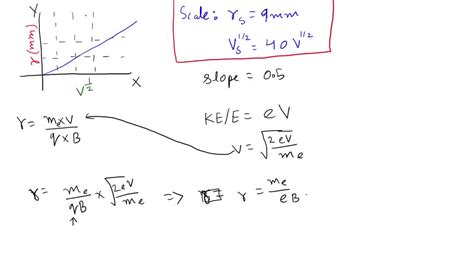 Y
r (mm)
X
V^{1/2}
Scale: r_s = 9mm
V_s^{1/2} = 40 V^{1/2}
slope = 0.5
KE/E = eV
r = \frac{m_e × V}{q × B}
V = \sqrt{\frac{2eV}{m_e}}
r = \frac{m_e}{qB} × \sqrt{\frac{2eV}{m_e}} => r = \frac{m_e}{eB}